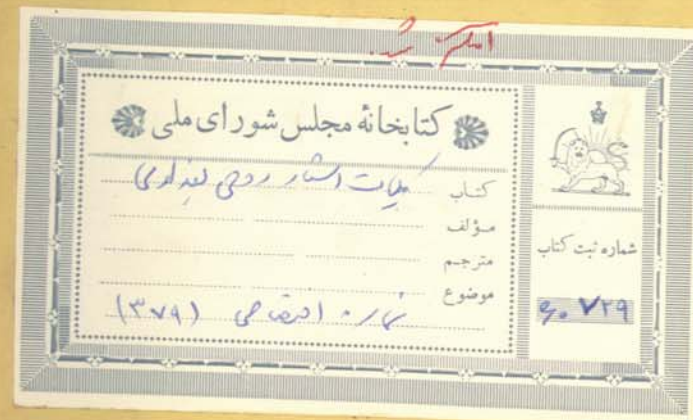 اسکن شد
کتابخانهٔ مجلس شورای ملی
کتاب کلیات اشعار روحی بغدادی
مؤلف
مترجم
موضوع
شماره اختصاصی (۳۷۹)
شماره ثبت کتاب
۶۰۷۲۹